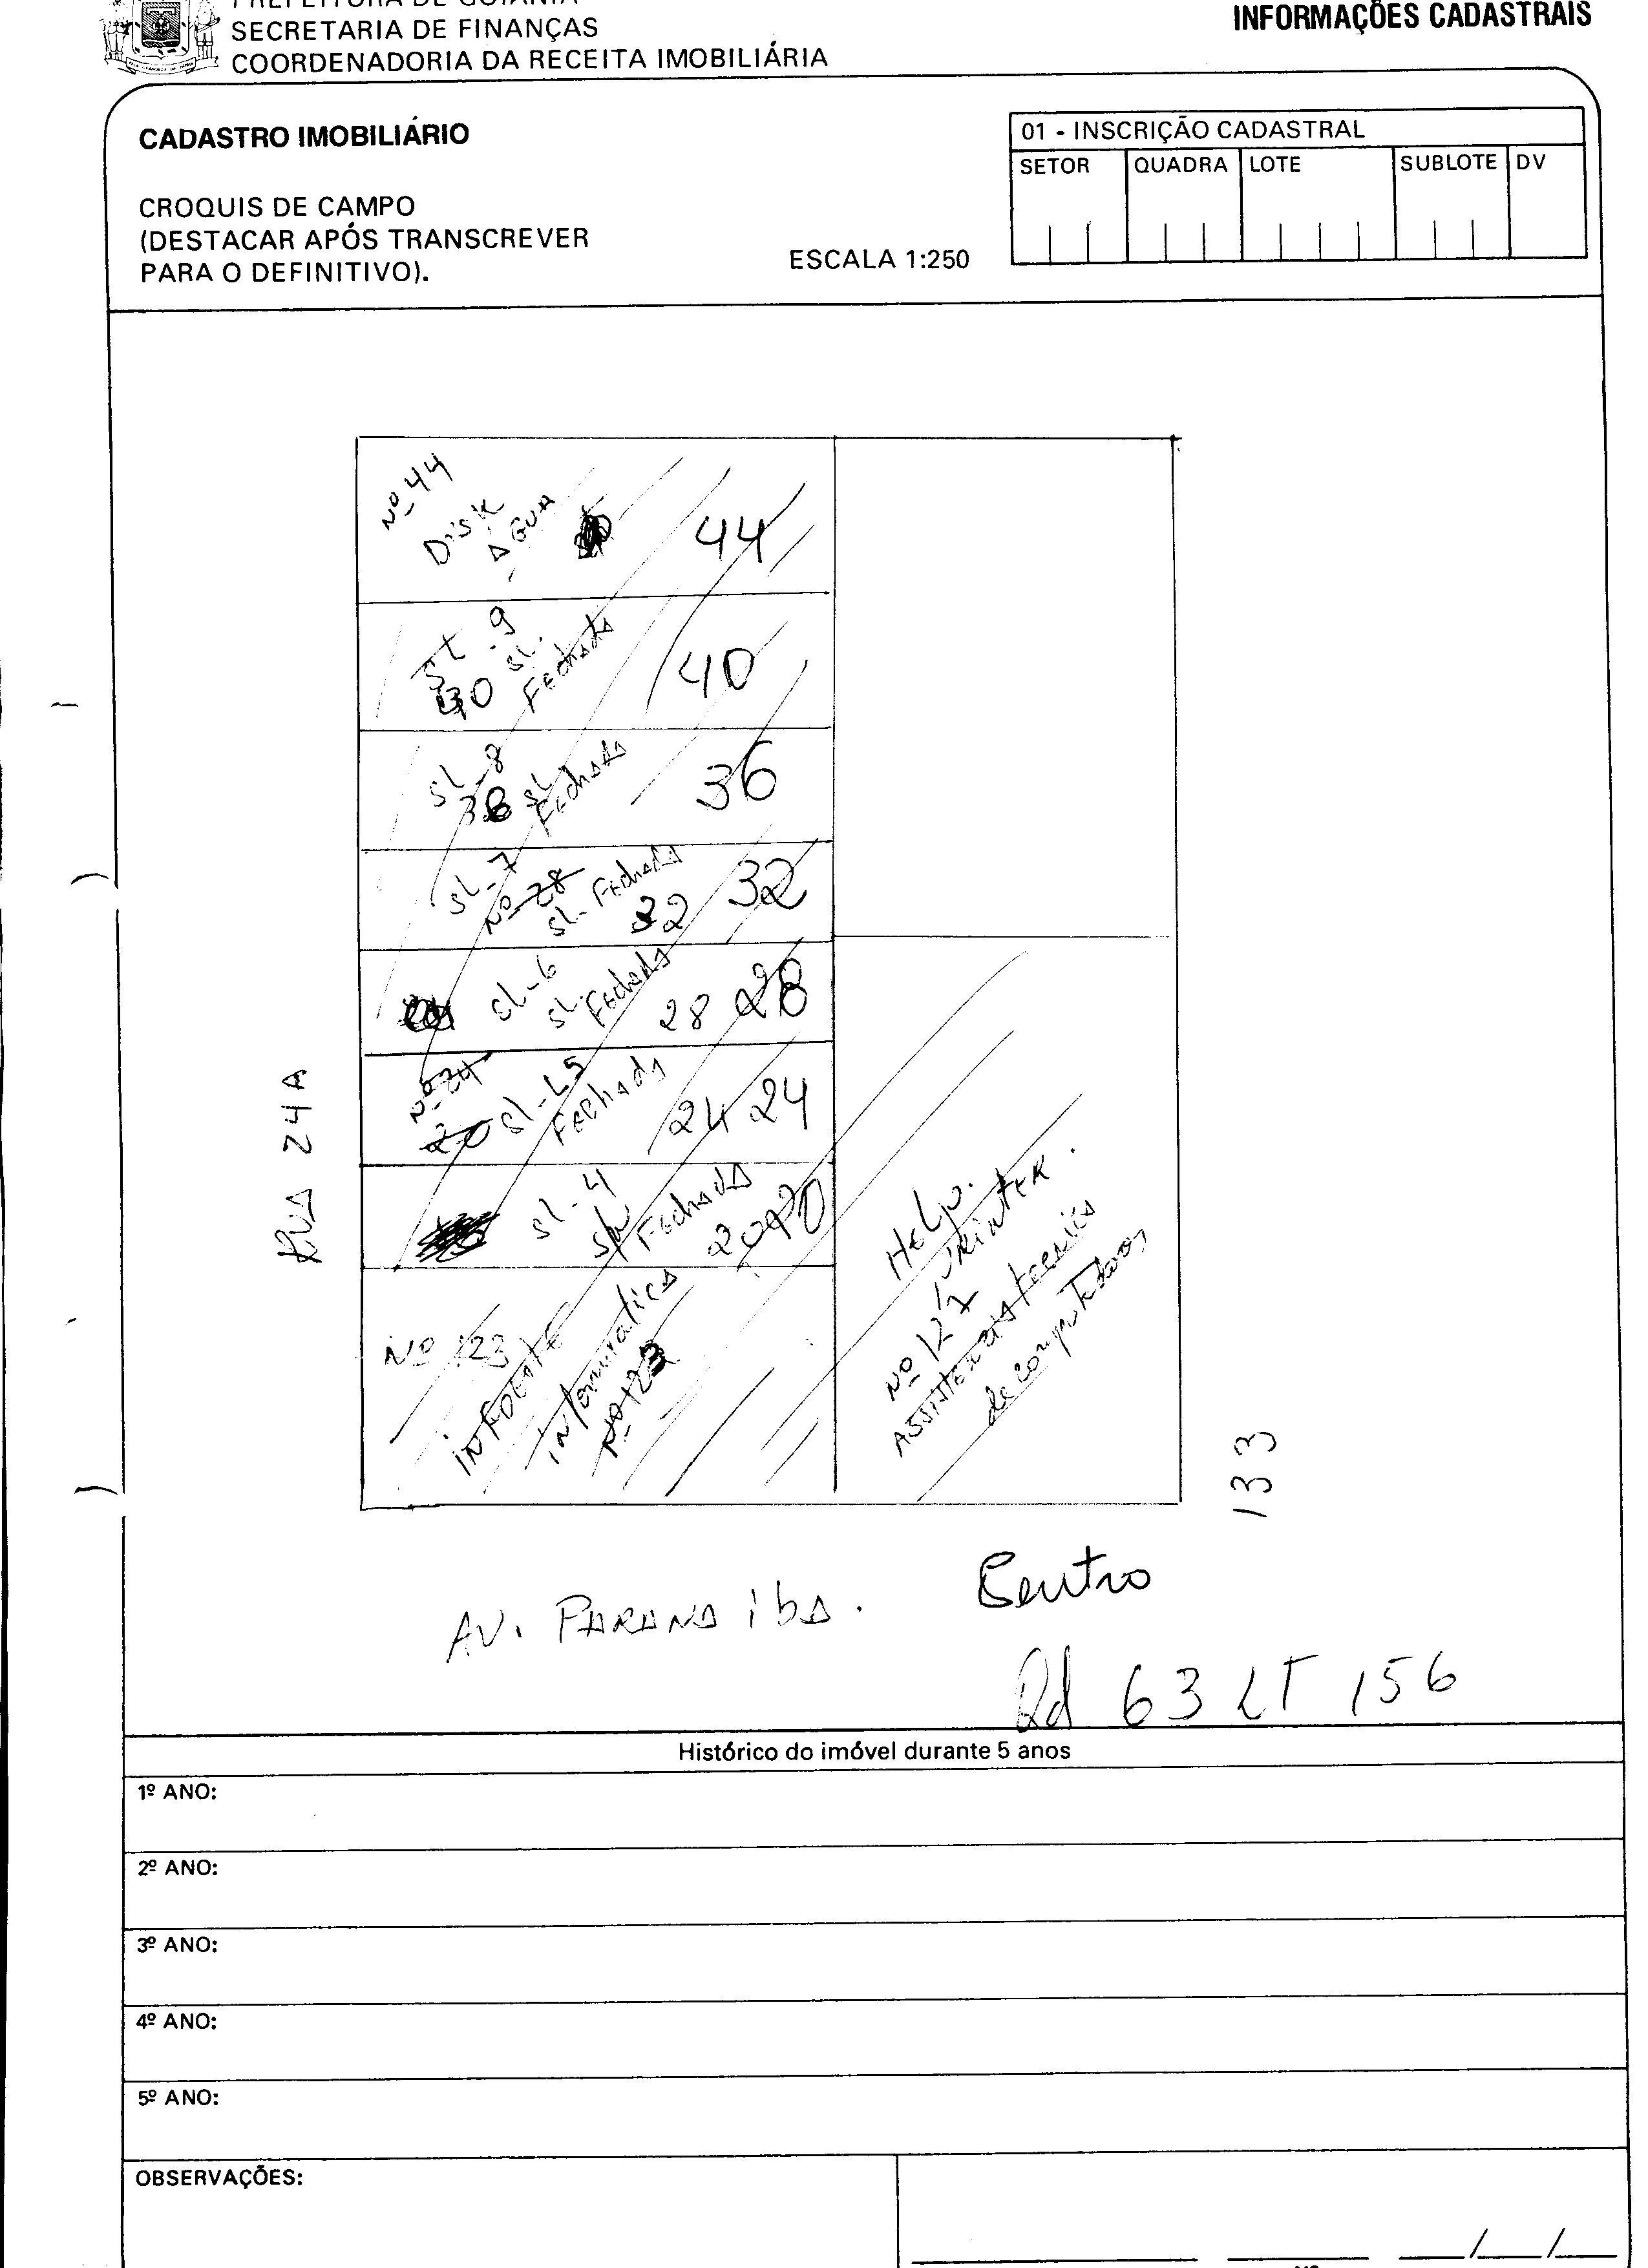 PREFEITURA DE GOIÂNIA
SECRETARIA DE FINANÇAS
COORDENADORIA DA RECEITA IMOBILIÁRIA
INFORMAÇÕES CADASTRAIS
CADASTRO IMOBILIÁRIO
CROQUIS DE CAMPO
(DESTACAR APÓS TRANSCREVER
PARA O DEFINITIVO).
ESCALA 1:250
01 - INSCRIÇÃO CADASTRAL
SETOR QUADRA LOTE SUBLOTE DV
Nº 44
Disk
AGUA
44
SL. 9
40 SL.
Fechada
40
SL-8
36 SL
Fechada
36
SL-7
Nº 28
SL- Fechada
32 32
SL-6
SL. Fechada
28 28
Nº 24
20 SL-5
Fechada
24 24
SL-4
Fechada
20 20
Nº 123
informatica
Nº 123
Help.
PRINTER.
Nº 127
de computadores
RUA 24A
133
AV. PARANAIBA.
Centro
Qd 63 LT 156
Histórico do imóvel durante 5 anos
1º ANO:
2º ANO:
3º ANO:
4º ANO:
5º ANO:
OBSERVAÇÕES: